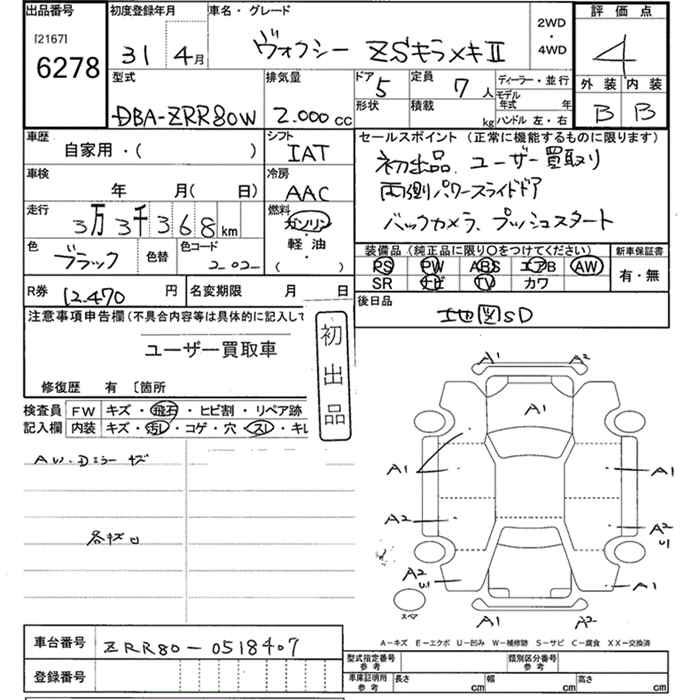 出品番号
[2167]
6278
初度登録年月
31 4月
車名・グレード
ヴォクシー ZSキラメキⅡ
2WD
・
4WD
評価点
4
外装 内装
B B
型式
DBA-ZRR80W
排気量
2.000 cc
ドア 5
定員 7人
形状
積載 kg
ディーラー・並行
モデル年式 年
ハンドル 左・右
車歴
自家用・( )
シフト
IAT
セールスポイント(正常に機能するものに限ります)
初出品、ユーザー買取り
両側パワースライドドア
バックカメラ、プッシュスタート
車検
年 月( 日)
冷房
AAC
走行
3万3千368km
燃料
ガソリン
・
軽油
( )
色
ブラック
色替
色コード
202
装備品(純正品に限り○をつけてください)
PS PW ABS エアB AW
SR ナビ TV カワ
新車保証書
有・無
R券 12.470 円
名変期限 月 日
後日品
地図SD
注意事項申告欄(不具合内容等は具体的に記入して
ユーザー買取車
修復歴 有 〔箇所
初出品
検査員
記入欄
FW キズ・飛石・ヒビ割・リペア跡
内装 キズ・汚し・コゲ・穴・スレ・キレ
AW・Dミラーキズ
各キズ凹
A1 A2
A1
A1 A1
A2 A2
U1
A2
U1 A1
A1 A2
スペア
A-キズ E-エクボ U-凹み W-補修跡 S-サビ C-腐食 XX-交換済
車台番号 ZRR80-0518407
登録番号
型式指定番号
参考
類別区分番号
参考
車庫証明用
参考
長さ cm 幅 cm 高さ cm